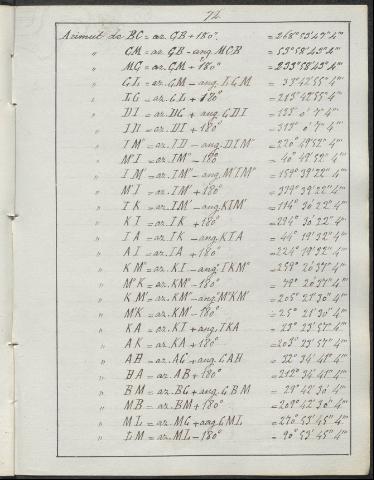 72
Azimut de BC = az. CB + 180° = 268° 53' 43" 4'''
" CM = az. CB - ang. MCB = 53° 58' 43" 4'''
" MC = az. CM + 180° = 233° 58' 43" 4'''
" GL = az. GM - ang. LGM = 33° 42' 55" 4'''
" LG = az. GL + 180° = 213° 42' 55" 4'''
" DI = az. DG + ang. GDI = 133° 0' 7" 4'''
" ID = az. DI + 180° = 313° 0' 7" 4'''
" IM" = az. ID - ang. DIM" = 220° 49' 52" 4'''
" M"I = az. IM" - 180° = 40° 49' 52" 4'''
" IM' = az. IM" - ang. M"IM' = 159° 39' 22" 4'''
" M'I = az. IM' + 180° = 339° 39' 22" 4'''
" IK = az. IM' - ang. KIM' = 114° 30' 22" 4'''
" KI = az. IK + 180° = 294° 30' 22" 4'''
" IA = az. IK - ang. KIA = 44° 19' 32" 4'''
" AI = az. IA + 180° = 224° 19' 32" 4'''
" KM" = az. KI - ang. IKM" = 259° 20' 37" 4'''
" M"K = az. KM" - 180° = 79° 20' 37" 4'''
" KM' = az. KM" - ang. M"KM' = 205° 21' 30" 4'''
" M'K = az. KM' - 180° = 25° 21' 30" 4'''
" KA = az. KI + ang. IKA = 23° 23' 57" 4'''
" AK = az. KA + 180° = 203° 23' 57" 4'''
" AB = az. AG + ang. GAB = 32° 34' 41" 4'''
" BA = az. AB + 180° = 212° 34' 41" 4'''
" BM = az. BG + ang. GBM = 29° 42' 30" 4'''
" MB = az. BM + 180° = 209° 42' 30" 4'''
" ML = az. MG + ang. GML = 270° 53' 45" 4'''
" LM = az. ML - 180° = 90° 53' 45" 4'''